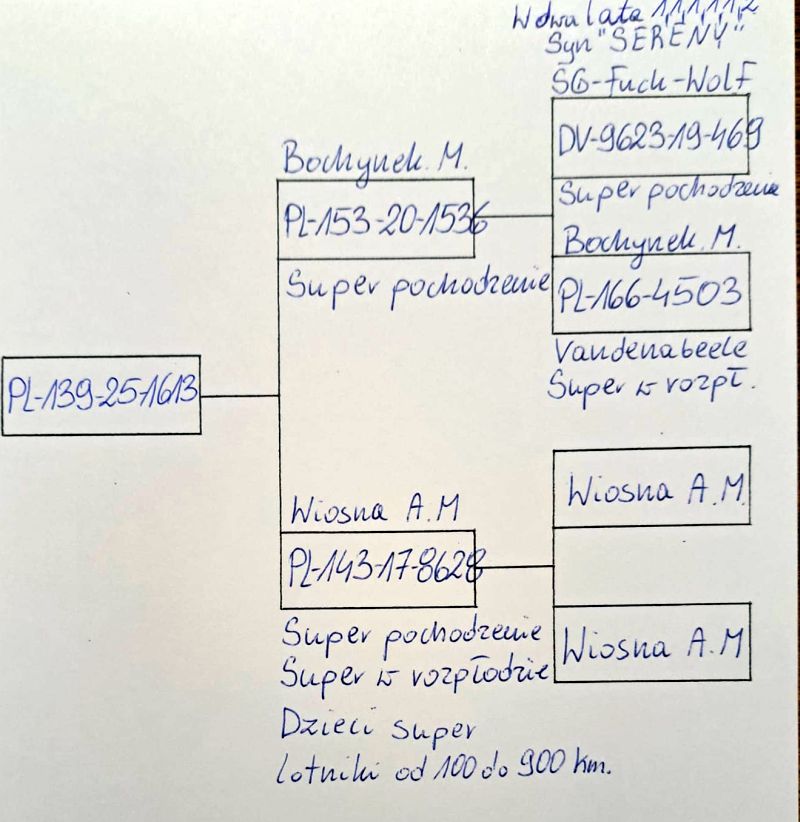 W dwa lata 1,1,1,1,1,2
Syn "SERENY"
SG-Fuck-Wolf
DV-9623-19-469
Super pochodzenie
Bochynek. M.
PL-153-20-1536
Super pochodzenie
Bochynek. M.
PL-166-4503
Vandenabeele
Super w rozpł.
PL-139-25-1613
Wiosna A.M
PL-143-17-8628
Super pochodzenie
Super w rozpłodzie
Dzieci super
lotniki od 100 do 900 km.
Wiosna A.M
Wiosna A.M